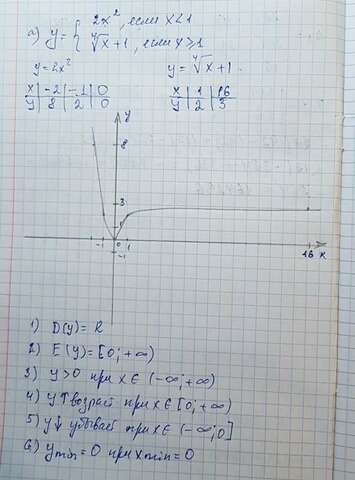 а) y = { 2x², если x<1
⁴√x + 1, если x ≥ 1
y = 2x²
y = ⁴√x + 1.
x | -2 | -1 | 0
y | 8 | 2 | 0
x | 1 | 16
y | 2 | 3
y
8
3
1
-1 0 1 16 x
-1
1) D(y) = R
2) E(y) = [0; +∞)
3) y>0 при x ∈ (-∞; +∞)
4) y↑ возраст при x ∈ [0; +∞)
5) y↓ убывает при x ∈ (-∞; 0]
6) ymin = 0 при xmin = 0